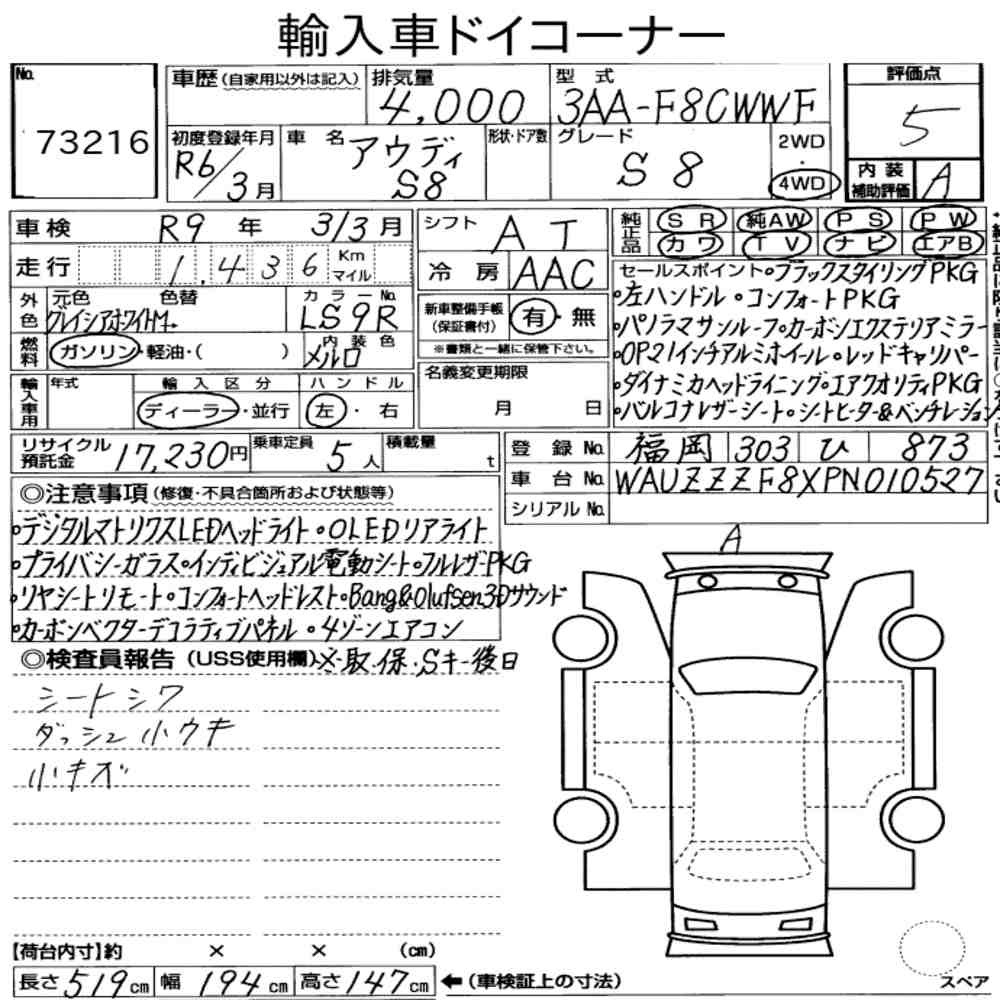 輸入車ドイコーナー
No. 73216
車歴 (自家用以外は記入)
排気量 4,000
型式 3AA-F8CWWF
評価点 5
内装補助評価 A
初度登録年月 R6/3月
車名 アウディ S8
形状・ドア数
グレード S8
2WD・4WD
車検 R9年 3/3月
シフト AT
純正品 SR 純AW PS PW
カワ TV ナビ エアB
走行 1,436 Km マイル
冷房 AAC
外色 元色 グレイシアホワイトM. 色替
カラーNo. LS9R
燃料 ガソリン・軽油・( )
内装色 メルロ
新車整備手帳(保証書付) 有・無
※書類と一緒に保管下さい。
輸入車用 年式
輸入区分 ディーラー・並行
ハンドル 左・右
名義変更期限 月 日
セールスポイント・ブラックスタイリングPKG
・左ハンドル・コンフォートPKG
・パノラマサンルーフ・カーボンエクステリアミラー
・OP21インチアルミホイール・レッドキャリパー
・ダイナミカヘッドライニング・エアクオリティPKG
・バルコナレザーシート・シートヒーター&ベンチレーション
リサイクル預託金 17,230円
乗車定員 5人
積載量 t
登録No. 福岡 303 ひ 873
車台No. WAUZZZF8XPN010527
シリアルNo.
◎注意事項 (修復・不具合箇所および状態等)
・デジタルマトリクスLEDヘッドライト・OLEDリアライト
・プライバシーガラス・インディビジュアル電動シート・フルレザーPKG
・リヤシートリモート・コンフォートヘッドレスト・Bang&Olufsen3Dサウンド
・カーボンベクターデコラティブパネル・4ゾーンエアコン
◎検査員報告 (USS使用欄) ※取.保.Sキー後日
シートシワ
ダッシュ小ウキ
小キズ
A
【荷台内寸】約 × × (cm)
長さ519cm 幅194cm 高さ147cm ←(車検証上の寸法)
スペア